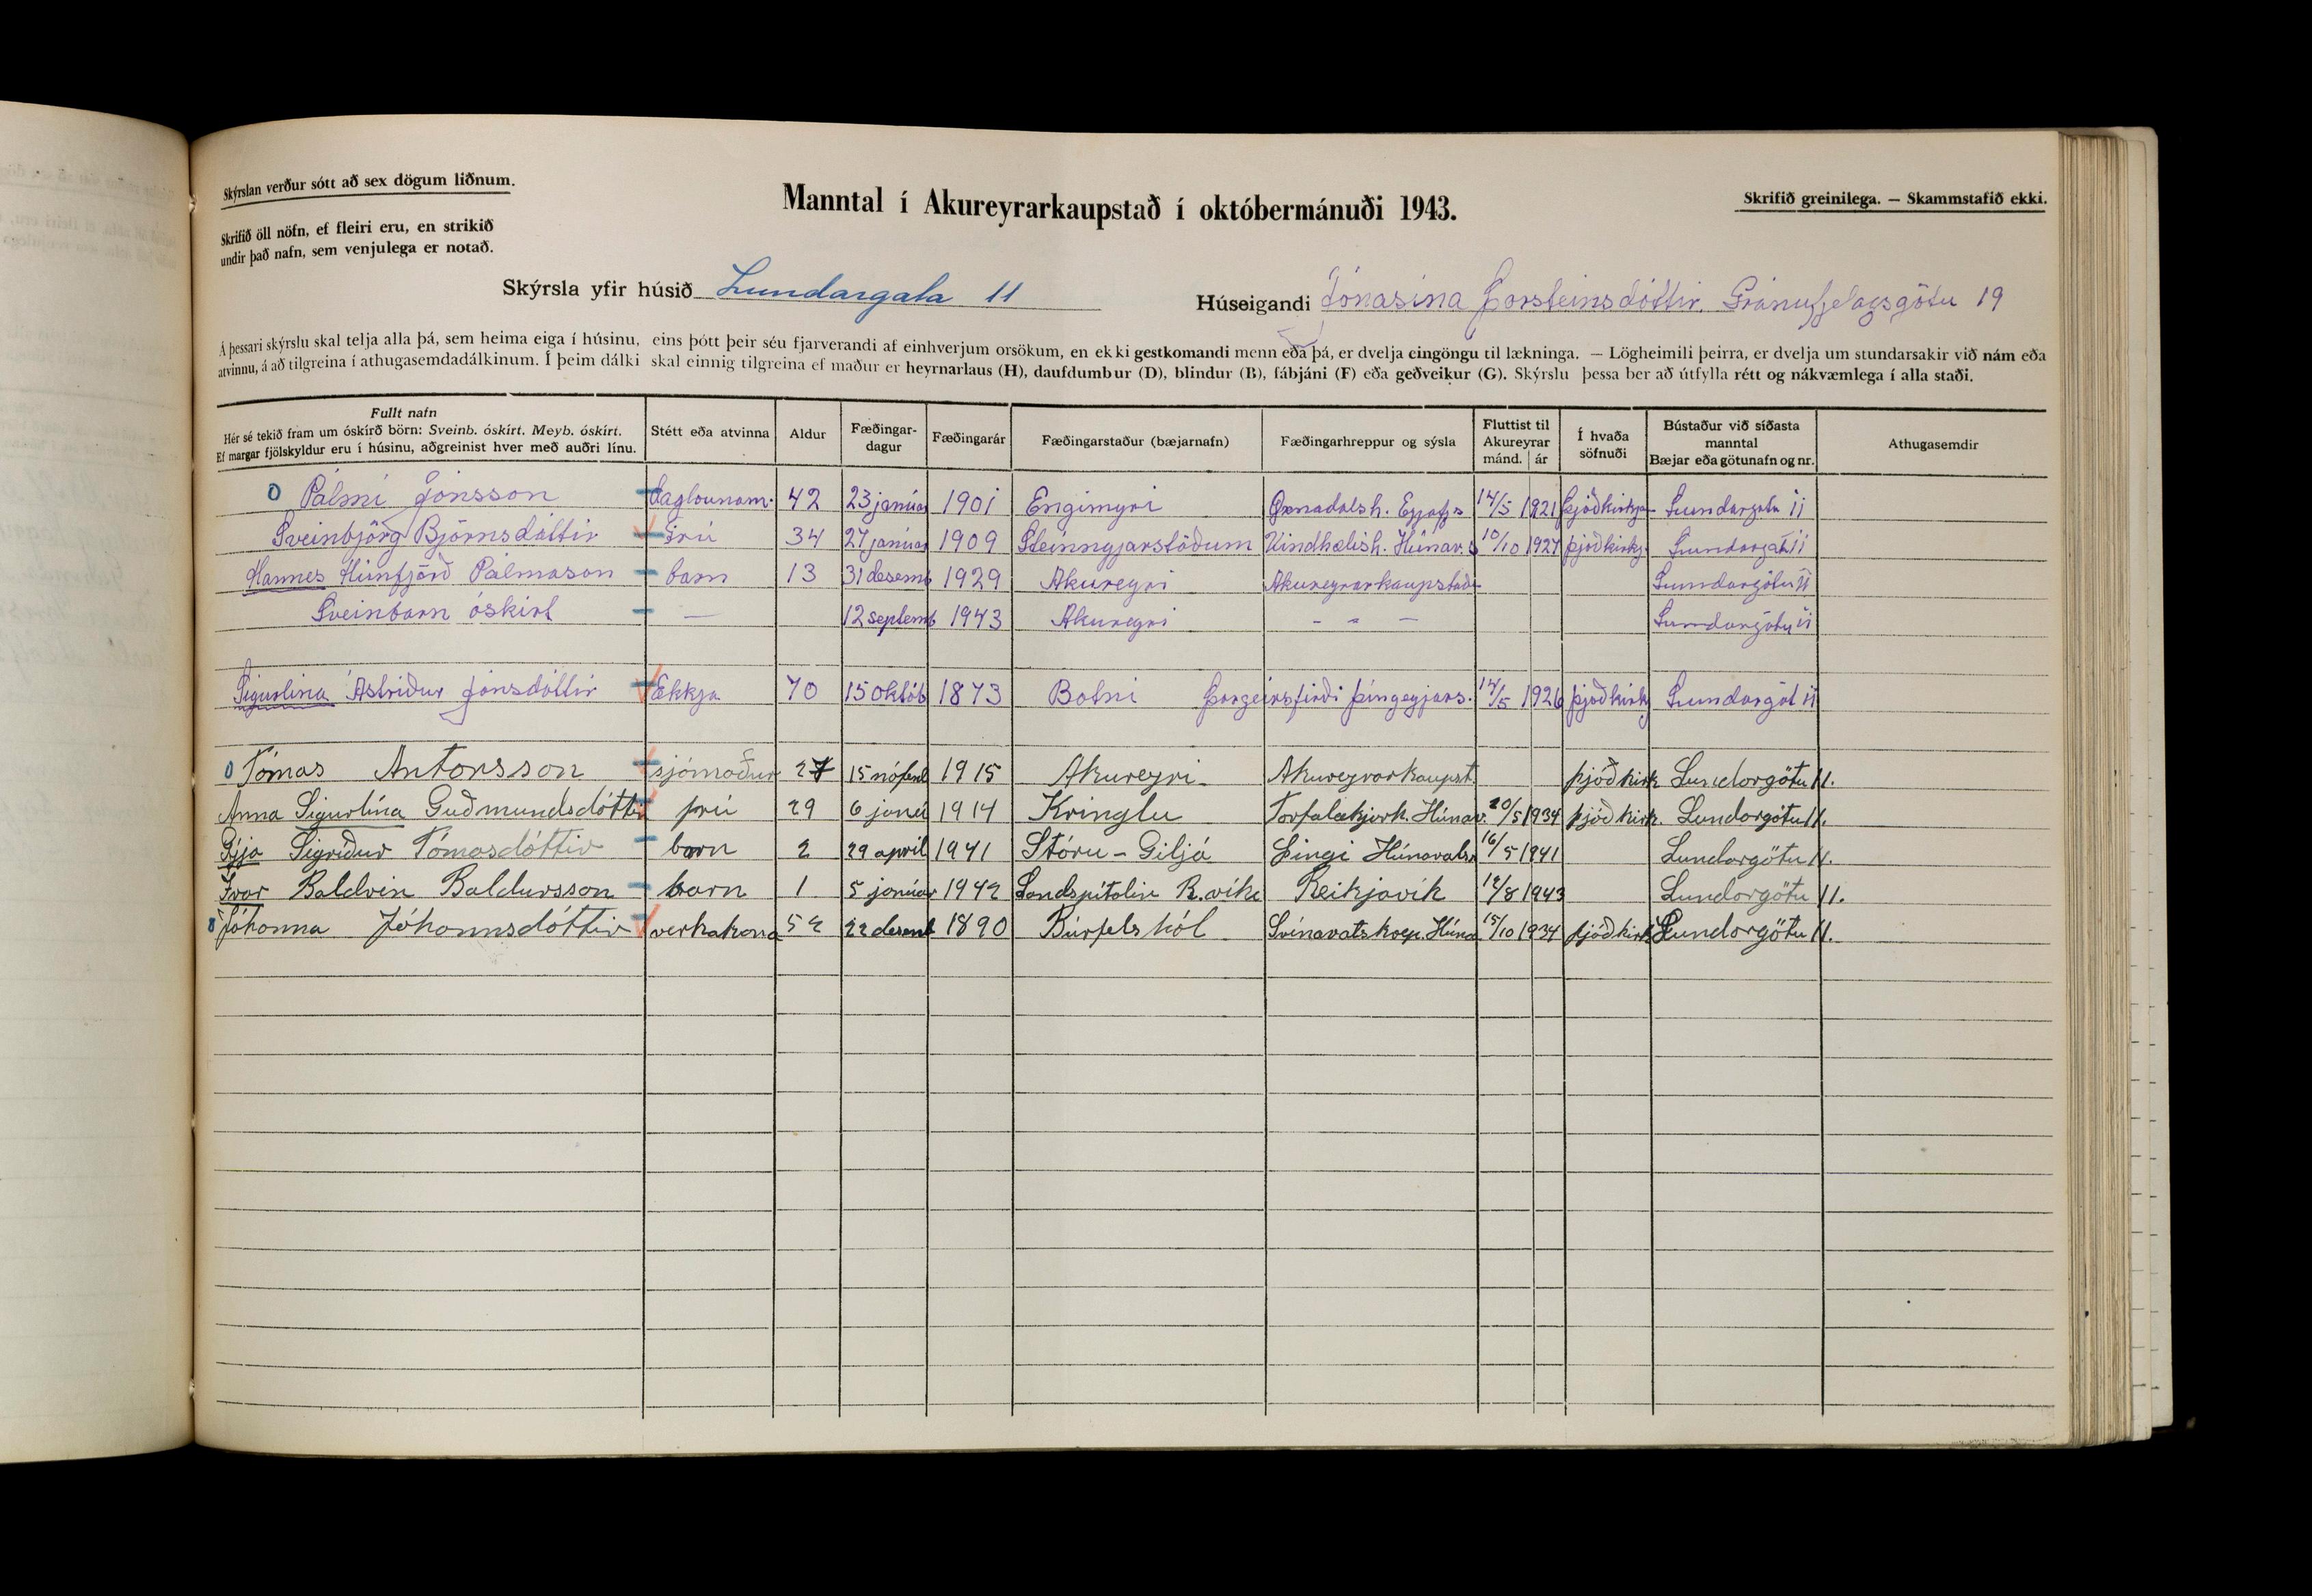 Skýrslan verður sótt að sex dögum liðnum.
Skrifið öll nöfn, ef fleiri eru, en strikið
undir það nafn, sem venjulega er notað.
Manntal í Akureyrarkaupstað í októbermánuði 1943.
Skrifið greinilega. — Skammstafið ekki.
Skýrsla yfir húsið Lundargata 11
Húseigandi Jónasína Þorsteinsdóttir. Gránufjelagsgötu 19
Á þessari skýrslu skal telja alla þá, sem heima eiga í húsinu, eins þótt þeir séu fjarverandi af einhverjum orsökum, en ekki gestkomandi menn eða þá, er dvelja eingöngu til lækninga. — Lögheimili þeirra, er dvelja um stundarsakir við nám eða
atvinnu, á að tilgreina í athugasemdadálkinum. Í þeim dálki skal einnig tilgreina ef maður er heyrnarlaus (H), daufdumbur (D), blindur (B), fábjáni (F) eða geðveikur (G). Skýrslu þessa ber að útfylla rétt og nákvæmlega í alla staði.
Fullt nafn
Hér sé tekið fram um óskírð börn: Sveinb. óskírt. Meyb. óskírt.
Ef margar fjölskyldur eru í húsinu, aðgreinist hver með auðri línu.
Stétt eða atvinna
Aldur
Fæðingar-
dagur
Fæðingarár
Fæðingarstaður (bæjarnafn)
Fæðingarhreppur og sýsla
Fluttist til
Akureyrar
mánd. ár
Í hvaða
söfnuði
Bústaður við síðasta
manntal
Bæjar eða götunafn og nr.
Athugasemdir
Pálmi Jónsson daglaunam. 42 23 janúar 1901 Engimýri Öxnadalsh. Eyjafjs 14/5 1921 þjóðkirkja Lundargata 11
Sveinbjörg Björnsdóttir Frú 34 27 janúar 1909 Steinnyjarstöðum Vindhælish. Húnav.s 10/10 1927 þjóðkirkj. Lundargat 11
Hannes Húnfjörð Pálmason barn 13 31 desemb 1929 Akureyri Akureyrarkaupstað Lundargötu 11
Sveinbarn óskírt — 12 septemb 1943 Akureyri - - - Lundargötu 11
Sigurlína Ástríður Jónsdóttir Ekkja 70 15 októb 1873 Botni Þorgeirsfirði Þingeyjars. 14/5 1926 þjóðkirkj Lundargöt 11
Tómas Antonsson sjómaður 27 15 nófenb 1915 Akureyri Akureyrarkaupst. þjóðkirk Lundargötu 11.
Anna Sigurlína Guðmundsdóttir frú 29 6 1914 Kringlu Torfalækjarh. Húnav. 20/5 1934 þjóðkirk. Lundargötu 11.
Sigríður Tómasdóttir barn 2 29 apríl 1941 Stóru-Giljá Þingi Húnavatss 16/5 1941 Lundargötu 11.
Ívar Baldvin Baldursson barn 1 5 janúar 1942 Landspítalin R.víke Reikjavík 12/8 1943 Lundargötu 11.
Jóhanna Jóhannsdóttir verkakona 52 22 desenb 1890 Búrfels hól Svínavatshrep. Húna 15/10 1934 þjóðkirk Lundargötu 11.